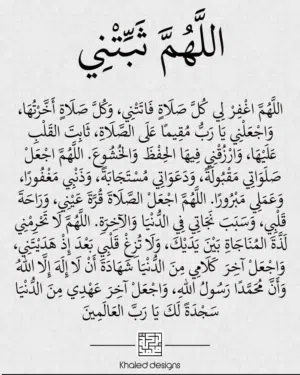 اللَّهُمَّ ثَبِّتْنِي
اللَّهُمَّ اغْفِرْ لِي كُلَّ صَلَاةٍ فَاتَتْنِي، وَكُلَّ صَلَاةٍ أَخَّرْتُهَا،
وَاجْعَلْنِي يَا رَبُّ مُقِيمًا عَلَى الصَّلَاةِ، ثَابِتَ القَلْبِ
عَلَيْهَا، وَارْزُقْنِي فِيهَا الحِفْظَ وَالخُشُوعَ. اللَّهُمَّ اجْعَلْ
صَلَوَاتِي مَقْبُولَةً، وَدَعَوَاتِي مُسْتَجَابَةً، وَذَنْبِي مَغْفُورًا،
وَعَمَلِي مَبْرُورًا. اللَّهُمَّ اجْعَلِ الصَّلَاةَ قُرَّةَ عَيْنِي، وَرَاحَةَ
قَلْبِي، وَسَبَبَ نَجَاتِي فِي الدُّنْيَا وَالآخِرَةِ. اللَّهُمَّ لَا تَحْرِمْنِي
لَذَّةَ المُنَاجَاةِ بَيْنَ يَدَيْكَ، وَلَا تُزِغْ قَلْبِي بَعْدَ إِذْ هَدَيْتَنِي،
وَاجْعَلْ آخِرَ كَلَامِي مِنَ الدُّنْيَا شَهَادَةَ أَنْ لَا إِلَهَ إِلَّا اللهُ
وَأَنَّ مُحَمَّدًا رَسُولُ اللهِ، وَاجْعَلْ آخِرَ عَهْدِي مِنَ الدُّنْيَا
سَجْدَةً لَكَ يَا رَبَّ العَالَمِينَ
Khaled designs